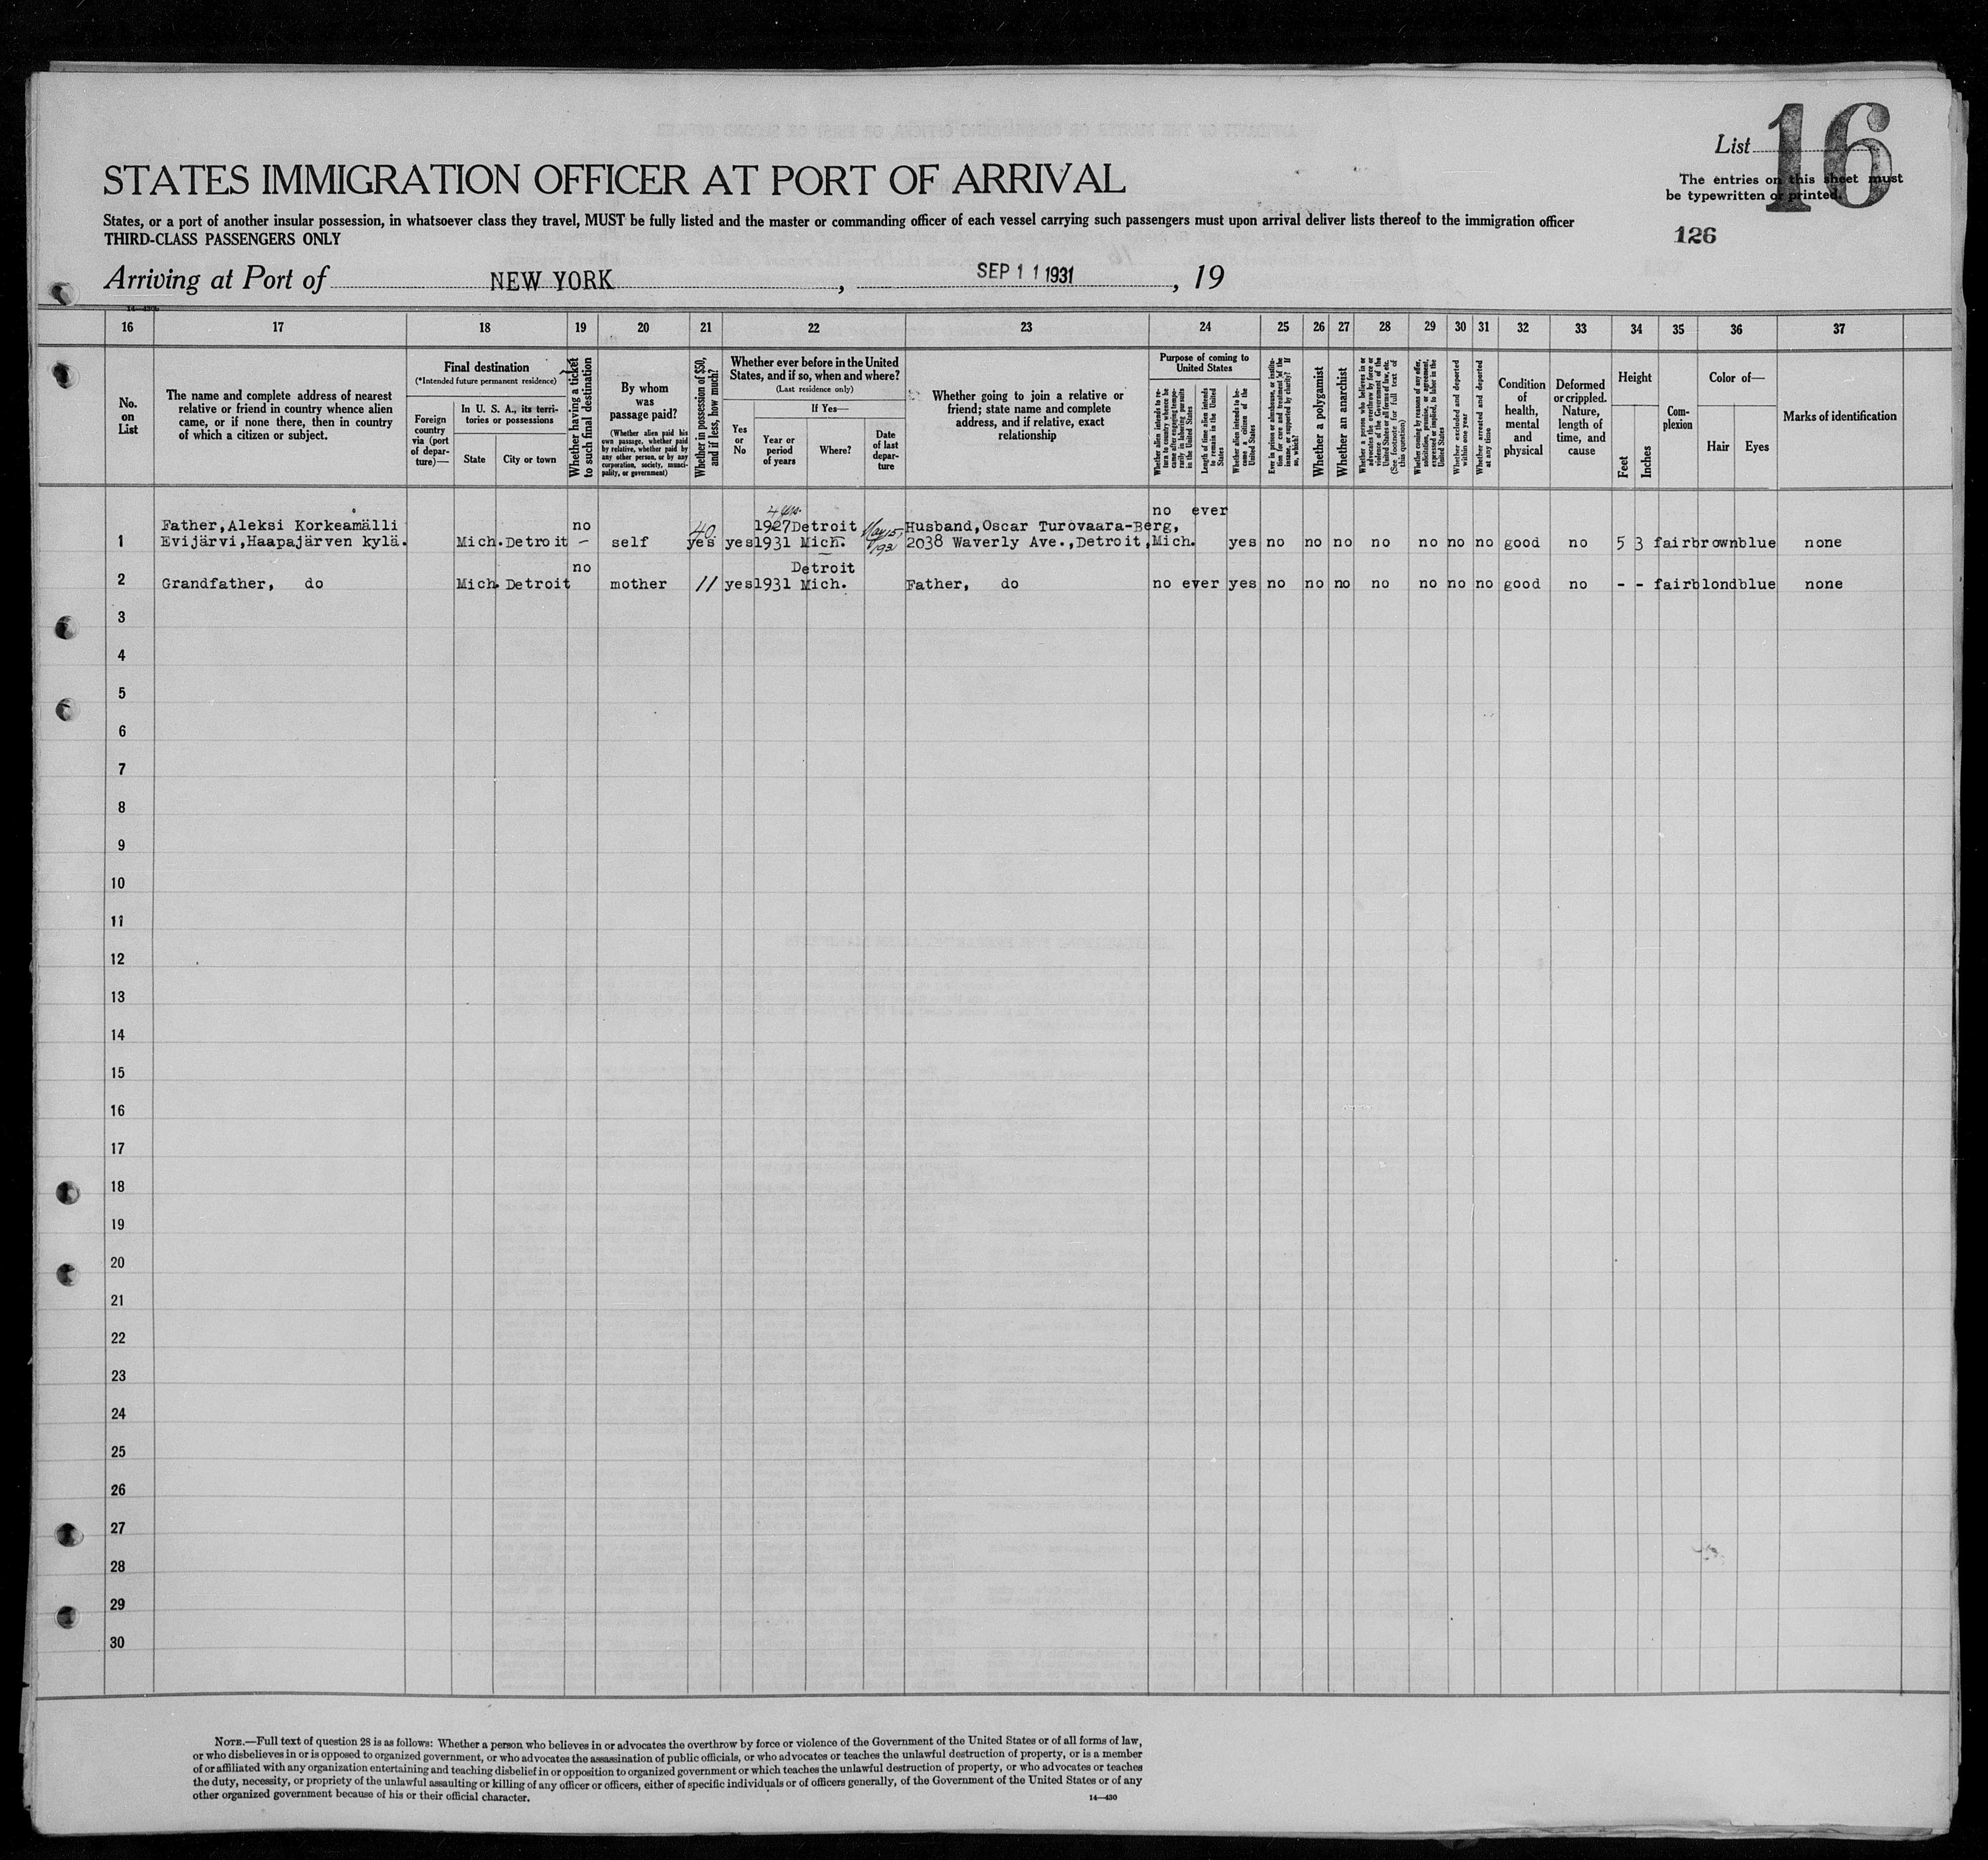 List 16
STATES IMMIGRATION OFFICER AT PORT OF ARRIVAL
The entries on this sheet must
be typewritten or printed.
States, or a port of another insular possession, in whatsoever class they travel, MUST be fully listed and the master or commanding officer of each vessel carrying such passengers must upon arrival deliver lists thereof to the immigration officer
THIRD-CLASS PASSENGERS ONLY
126
Arriving at Port of NEW YORK, SEP 11 1931, 19
16 17 18 19 20 21 22 23 24 25 26 27 28 29 30 31 32 33 34 35 36 37
No. on List
The name and complete address of nearest relative or friend in country whence alien came, or if none there, then in country of which a citizen or subject.
Final destination
(*Intended future permanent residence)
Foreign country via (port of departure)—
In U. S. A., its territories or possessions
State
City or town
Whether having a ticket to such final destination
By whom was passage paid?
(Whether alien paid his own passage, whether paid by relative, whether paid by any other person, or by any corporation, society, municipality, or government)
Whether in possession of $50, and if less, how much?
Whether ever before in the United States, and if so, when and where?
(Last residence only)
Yes or No
If Yes—
Year or period of years
Where?
Date of last departure
Whether going to join a relative or friend; state name and complete address, and if relative, exact relationship
Purpose of coming to United States
Whether alien intends to return to country whence he came after engaging temporarily in laboring pursuits in the United States
Length of time alien intends to remain in the United States
Whether alien intends to become a citizen of the United States
Ever in prison or almshouse, or institution for care and treatment of the insane, or supported by charity? If so, which?
Whether a polygamist
Whether an anarchist
Whether a person who believes in or advocates the overthrow by force or violence of the Government of the United States or all forms of law, etc. (See footnote for full text of this question)
Whether coming by reasons of any offer, solicitation, promise, or agreement, expressed or implied, to labor in the United States
Whether excluded and deported within one year
Whether arrested and deported at any time
Condition of health, mental and physical
Deformed or crippled. Nature, length of time, and cause
Height
Feet
Inches
Complexion
Color of—
Hair
Eyes
Marks of identification
4 yrs. no ever
Father,Aleksi Korkeamälli no 40 1927 Detroit May 15, Husband,Oscar Turovaara-Berg,
1 Evijärvi,Haapajärven kylä. Mich. Detroit – self yes yes 1931 Mich. 1931 2038 Waverly Ave.,Detroit,Mich. yes no no no no no no no good no 5 3 fair brown blue none
no Detroit
2 Grandfather, do Mich. Detroit mother 11 yes 1931 Mich. Father, do no ever yes no no no no no no no good no - - fair blond blue none
3
4
5
6
7
8
9
10
11
12
13
14
15
16
17
18
19
20
21
22
23
24
25
26
27
28
29
30
NOTE.—Full text of question 28 is as follows: Whether a person who believes in or advocates the overthrow by force or violence of the Government of the United States or of all forms of law,
or who disbelieves in or is opposed to organized government, or who advocates the assassination of public officials, or who advocates or teaches the unlawful destruction of property, or is a member
of or affiliated with any organization entertaining and teaching disbelief in or opposition to organized government or which teaches the unlawful destruction of property, or who advocates or teaches
the duty, necessity, or propriety of the unlawful assaulting or killing of any officer or officers, either of specific individuals or of officers generally, of the Government of the United States or of any
other organized government because of his or their official character.
14—430